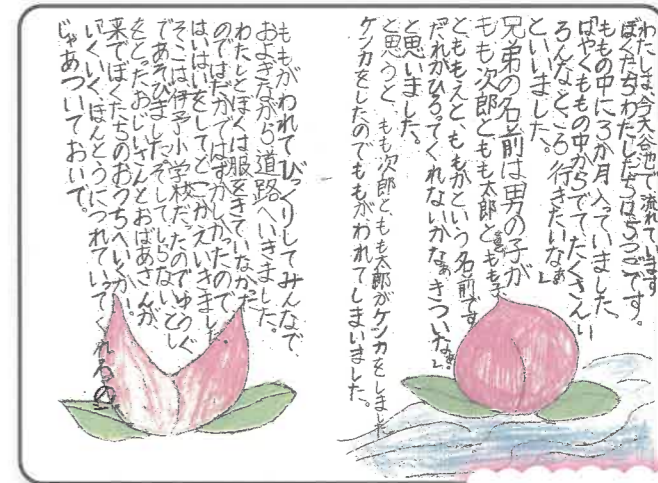 わたしは、今大谷池で流れています
ぼくたちわたしたちは5つごです。
ももの中に3か月入っていました
「はやくももの中からでてたくさんい
ろんなところ行きたいなぁ」
といいました。
兄弟の名前は男の子が
もも次郎ともも太郎ともも子
とももえと、ももかという名前です
「だれかひろってくれないかなぁきついなぁ。」
と思いました。
と思うと、もも次郎ともも太郎がケンカをしました
ケンカをしたのでももがわれてしまいました。
ももがわれてびっくりしてみんなで、
およぎながら道路へいきました。
わたしとぼくは服をきていなかった
のではだかではずかしかったので
はいはいをしてどこかえいきました
そこは伊予小学校だったのでゆうぐ
であそびました。そしてしらないとし
をとったおじいさんとおばあさんが
来てぼくたちのおうちへいくかい。
いくいく、ほんとうにつれていってくれるの
じゃあついておいで。